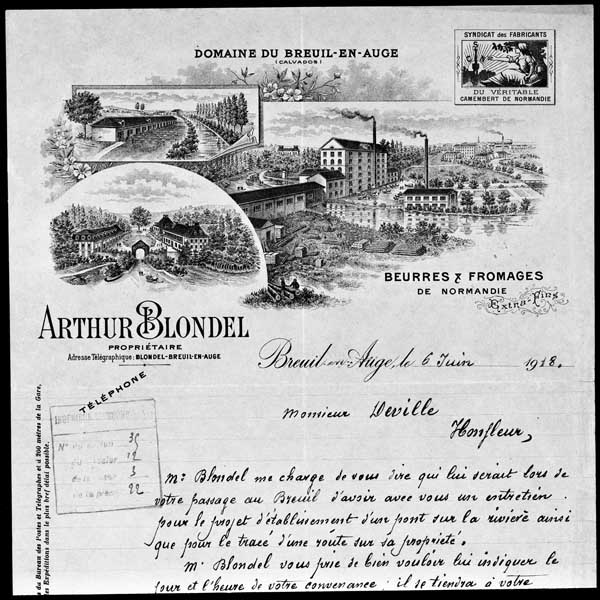 DOMAINE DU BREUIL-EN-AUGE
(CALVADOS)
SYNDICAT des FABRICANTS
DU VÉRITABLE
CAMEMBERT DE NORMANDIE
BEURRES & FROMAGES
DE NORMANDIE
Extra-Fins
ARTHUR BLONDEL
PROPRIÉTAIRE
Adresse Télégraphique: BLONDEL-BREUIL-EN-AUGE
Breuil-en-Auge, le 6 Juin 1918.
TÉLÉPHONE
Monsieur Deville
Honfleur,
35
12
3
22
M. Blondel me charge de vous dire qu'il lui serait lors de
votre passage au Breuil d'avoir avec vous un entretien
pour le projet d'établissement d'un pont sur la rivière ainsi
que pour le tracé d'une route sur sa propriété.
M. Blondel vous prie de bien vouloir lui indiquer le
jour et l'heure de votre convenance; il se tiendra à votre
du Bureau des Postes et Télégraphes et à 200 mètres de la Gare,
les Expéditions dans le plus bref délai possible.